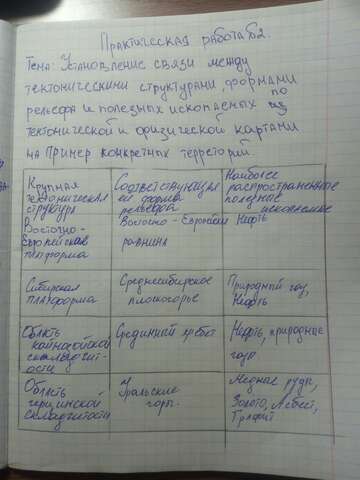 Практическая работа №2.
Тема: Установление связи между
тектоническими структурами, формами
рельефа и полезных ископаемых по
тектонической и физической картами
на пример конкретных территорий.
Крупная тектоническая структура
Соответствующая ей форма рельефа
Наиболее распространенные полезные ископаемые
Восточно-Европейская платформа
Восточно-Европейская равнина
Нефть
Сибирская платформа
Среднесибирское плоскогорье
Природный газ, Нефть
Область кайнозойской складчатости
Срединный хребет
Нефть, природные газы
Область герцинской складчатости
Уральские горы.
Медная руда, Золото, Асбест, Графит